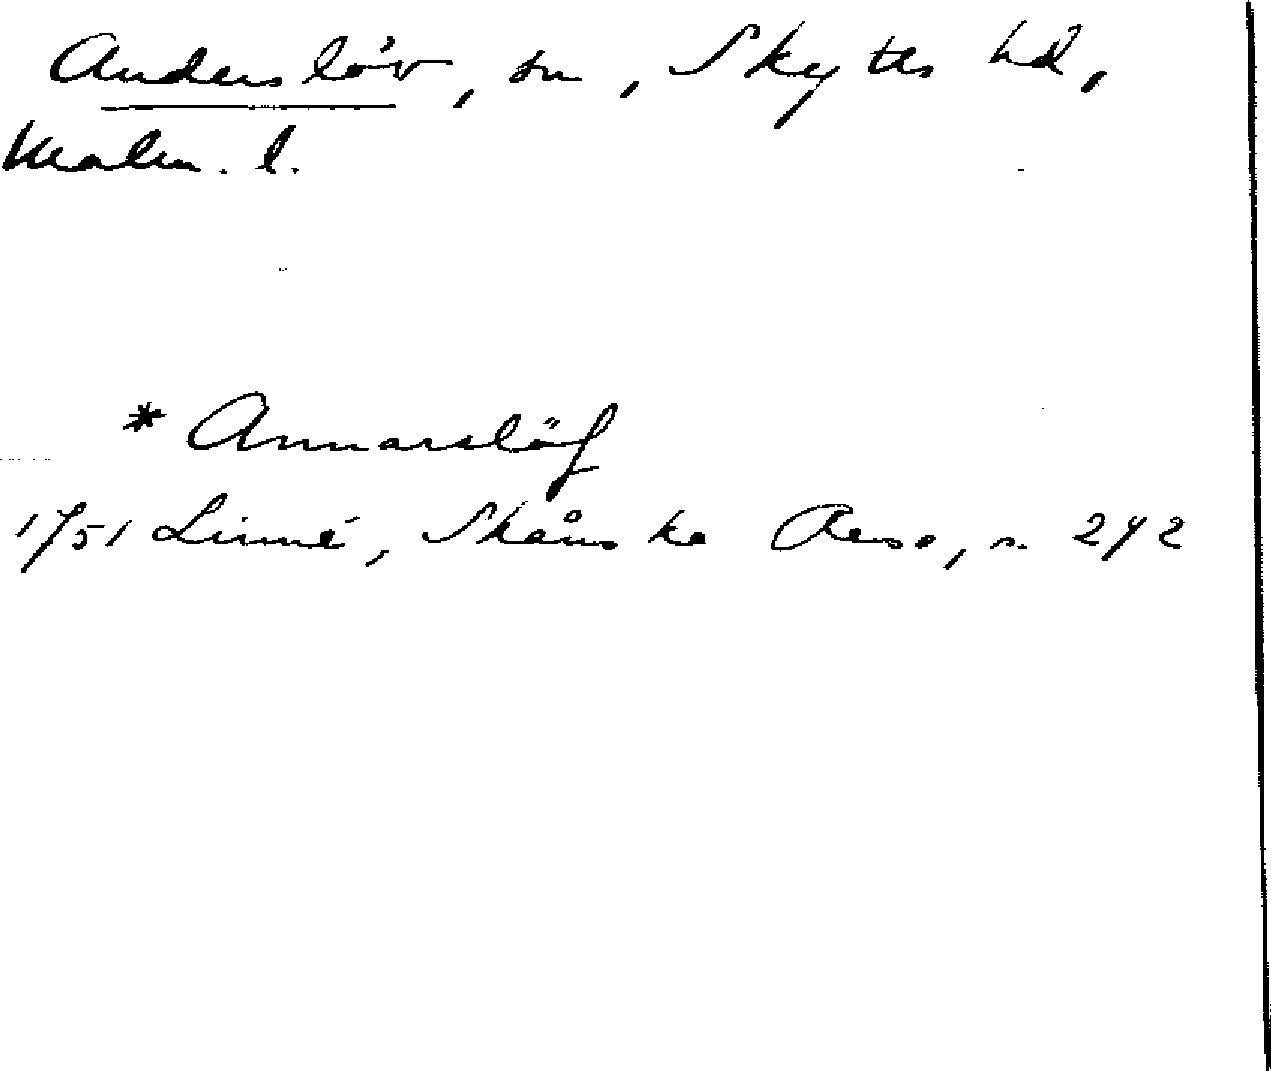 Anderslöv, sn, Skytts hd,
Malm. l.
* Annarslöf
1751 Linné, Skånska Resa, s. 272